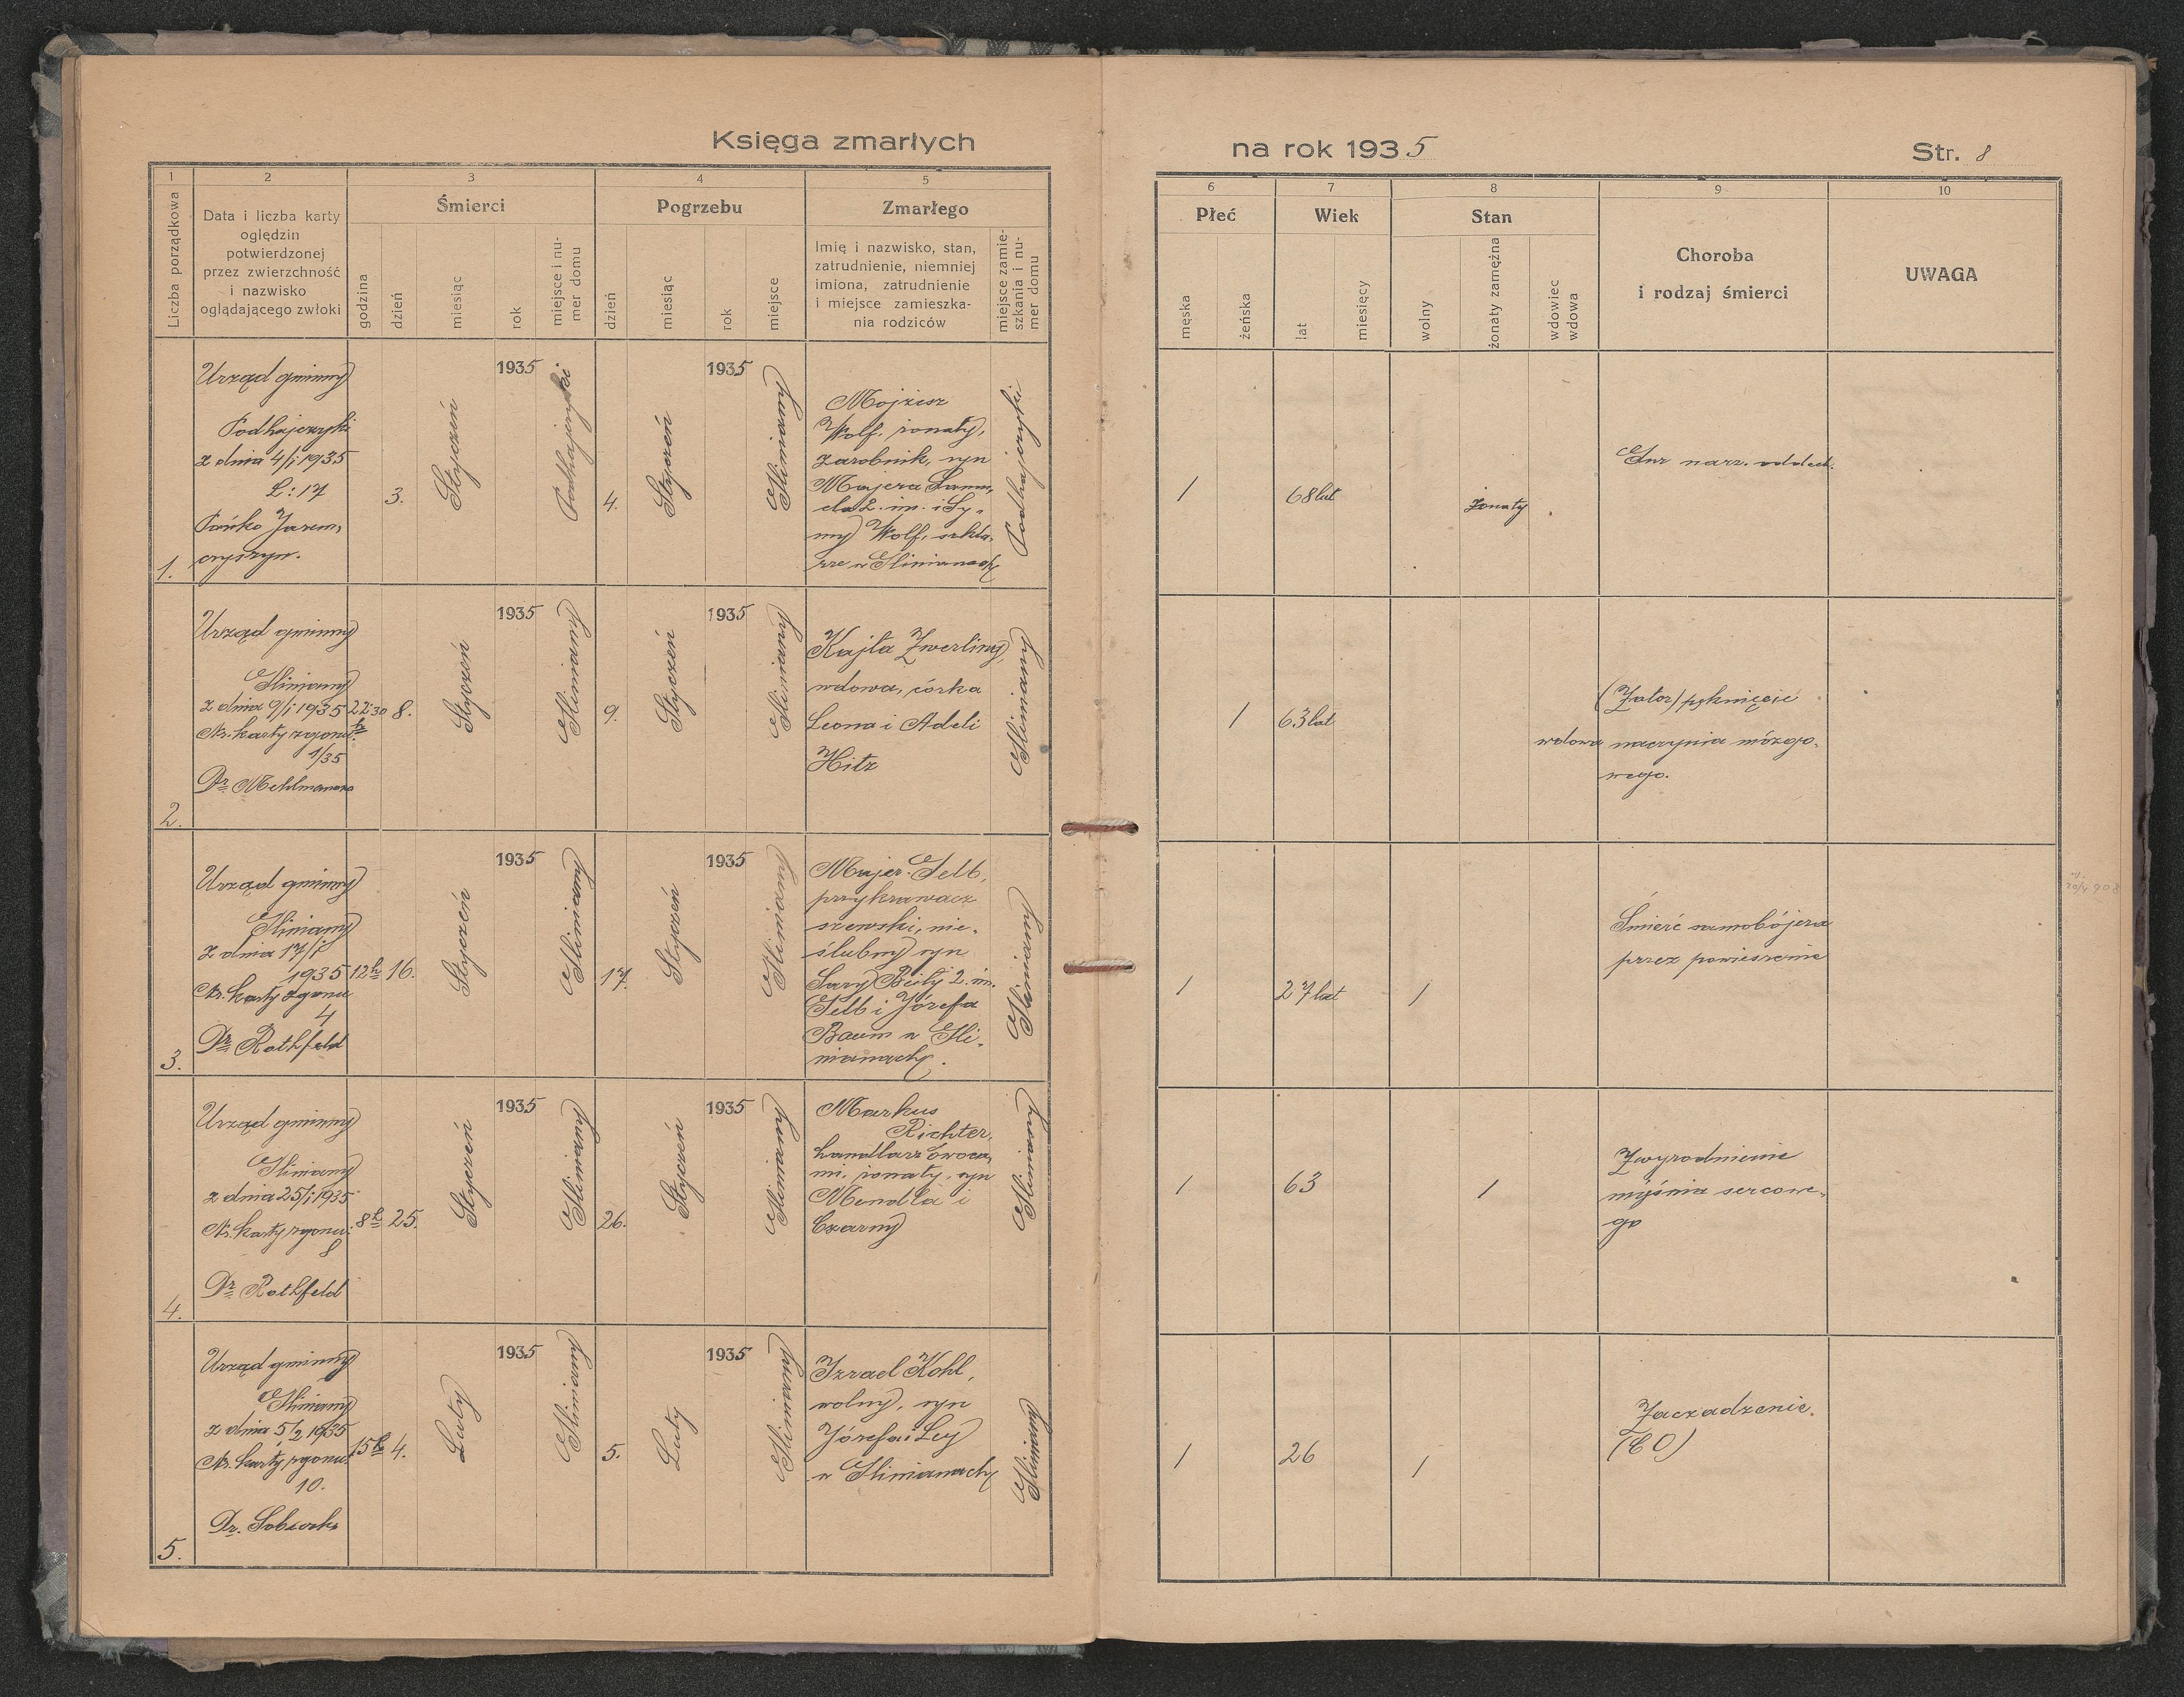 Księga zmarłych
na rok 1935
Str. 8
1
2
3
4
5
6
7
8
9
10
Liczba porządkowa
Data i liczba karty
oględzin
potwierdzonej
przez zwierzchność
i nazwisko
oglądającego zwłoki
Śmierci
godzina
dzień
miesiąc
rok
miejsce i nu-
mer domu
Pogrzebu
dzień
miesiąc
rok
miejsce
Zmarłego
Imię i nazwisko, stan,
zatrudnienie, niemniej
imiona, zatrudnienie
i miejsce zamieszka-
nia rodziców
miejsce zamie-
szkania i nu-
mer domu
Płeć
męska
żeńska
Wiek
lat
miesięcy
Stan
wolny
żonaty zamężna
wdowiec
wdowa
Choroba
i rodzaj śmierci
UWAGA
1.
Urząd gminny
Podhajczyki
z dnia 4/i 1935
L: 17
Pańko Jarem,
czyszyn.
3.
Styczeń
1935
Podhajczyki
4.
Styczeń
1935
Gliniany
Mojżesz
Wolf, żonaty,
zarobnik, syn
Majera Samu,
ela 2. im. i Sy,
my Wolf, szkla,
rze w Glinianach
Podhajczyki
1
68 lat
żonaty
narz. oddech.
2.
Urząd gminny
Gliniany
z dnia 9/i 1935
Nr. karty zgonu:
1/35
Dr Mehlmanna
22:30
h
8.
Styczeń
1935
Gliniany
9.
Styczeń
1935
Gliniany
Kajla Zwerling,
wdowa, córka
Leona i Adeli
Hitz
Gliniany
1
63 lat
wdowa
(Zator) pęknięcie
naczynia mózgo,
wego.
3.
Urząd gminny
Gliniany
z dnia 17/i
1935
Nr. karty zgonu
4
Dr Rothfeld
12h
16.
Styczeń
1935
Gliniany
17.
Styczeń
1935
Gliniany
Majer Selb,
przykrawacz
szewski, nie,
ślubny syn
Sary Beily 2. im.
Selb i Józefa
Baum w Gli,
nianach.
Gliniany
1
27 lat
1
Śmierć samobójcza
przez powieszenie
4.
Urząd gminny
Gliniany
z dnia 25/i 1935
Nr. karty zgonu:
8
Dr Rothfeld
8h
25.
Styczeń
1935
Gliniany
26.
Styczeń
1935
Gliniany
Markus
Richter,
handlarz owoca,
mi, żonaty, syn
Mendla i
Czarny
Gliniany
1
63
1
Zwyrodnienie
mięśnia sercowe,
go
5.
Urząd gminny
Gliniany
z dnia 5/2 1935
Nr. karty zgonu:
10.
Dr.
15h
4.
Luty
1935
Gliniany
5.
Luty
1935
Gliniany
Izrael Kohl,
wolny, syn
Józefa i Ley
w Glinianach
Gliniany
1
26
1
Zaczadzenie.
(CO)